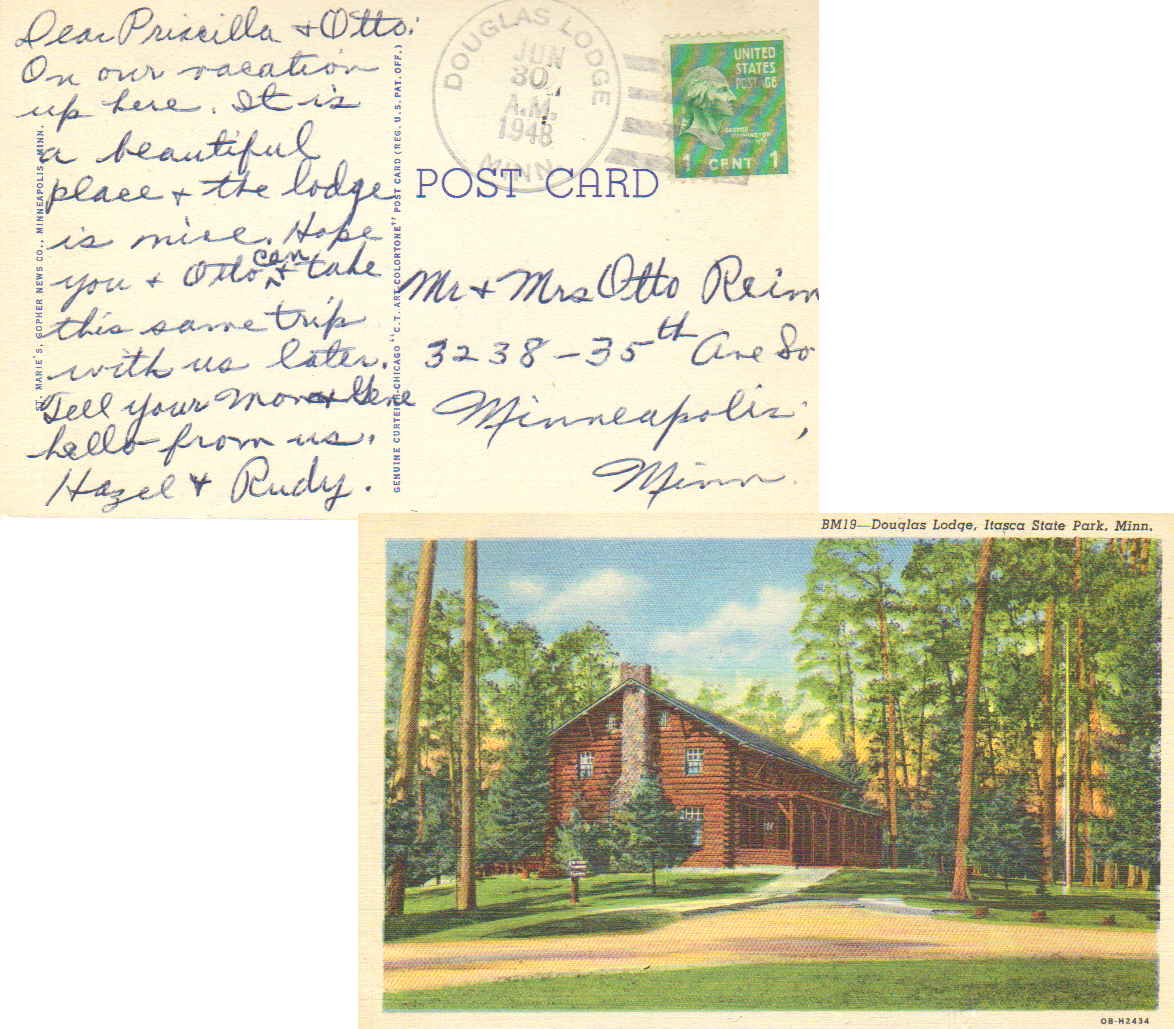 Dear Priscilla & Otto:
On our vacation
up here. It is
a beautiful
place & the lodge
is nice. Hope
you & Otto can take
this same trip
with us later.
Tell your Mom & Gene
hello from us.
Hazel & Rudy.
ST. MARIE'S, GOPHER NEWS CO., MINNEAPOLIS, MINN.
GENUINE CURTEICH-CHICAGO "C.T. ART-COLORTONE" POST CARD (REG. U.S. PAT. OFF.)
DOUGLAS LODGE
JUN
30
A.M.
1948
MINN.
UNITED
STATES
POSTAGE
GEORGE
WASHINGTON
1 CENT 1
POST CARD
Mr & Mrs Otto Reim
3238-35th Ave So
Minneapolis,
Minn.
BM19—Douglas Lodge, Itasca State Park, Minn.
OB-H2434